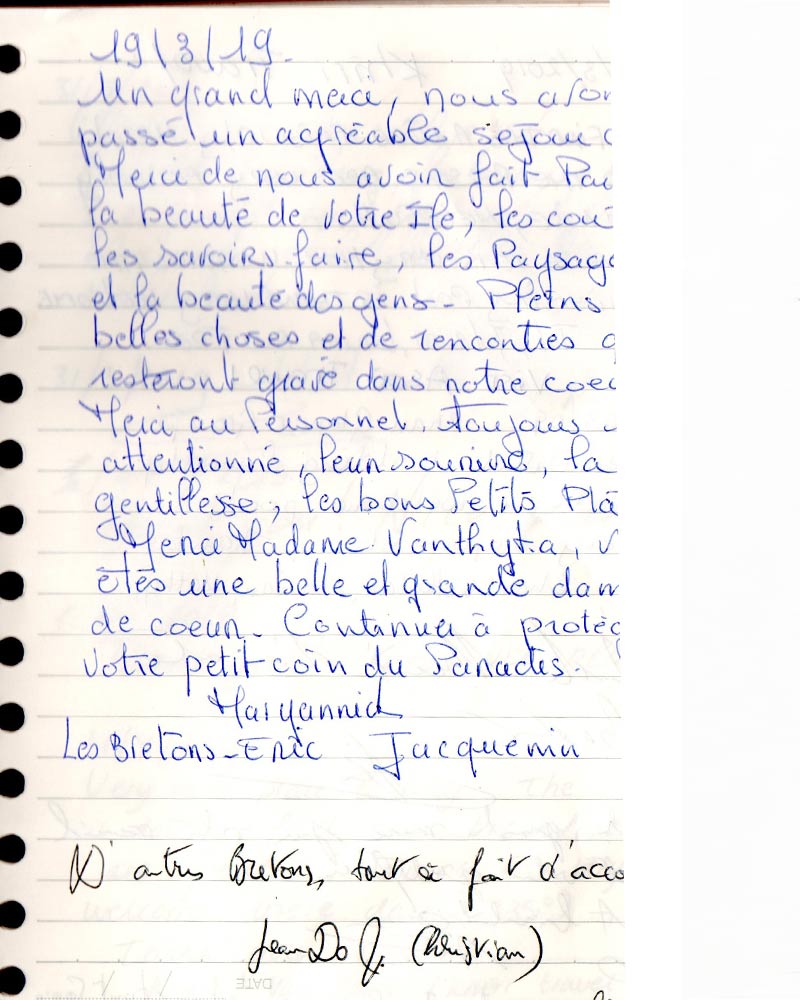 19/3/19.
Un grand merci, nous avon
passé un agréable sejour
Merci de nous avoir fait Par
la beauté de votre Ile, les cou
les savoirs faire, les Paysag
et la beauté des gens - Pleins
belles choses et de rencontres q
resteront gravé dans notre coeu
Merci au Personnel. Toujours
attentionné, leur sourire, la
gentillesse, les bons Petits Pla
Merci Madame Vanthyta, v
êtes une belle et grande dam
de coeur. Continuer à protég
votre petit coin du Paradis.
Maryannick
Les Bretons - Eric Jacquemin
D'autres Bretons, tout à fait d'acco
Jean Do J. (Christian)
DATE